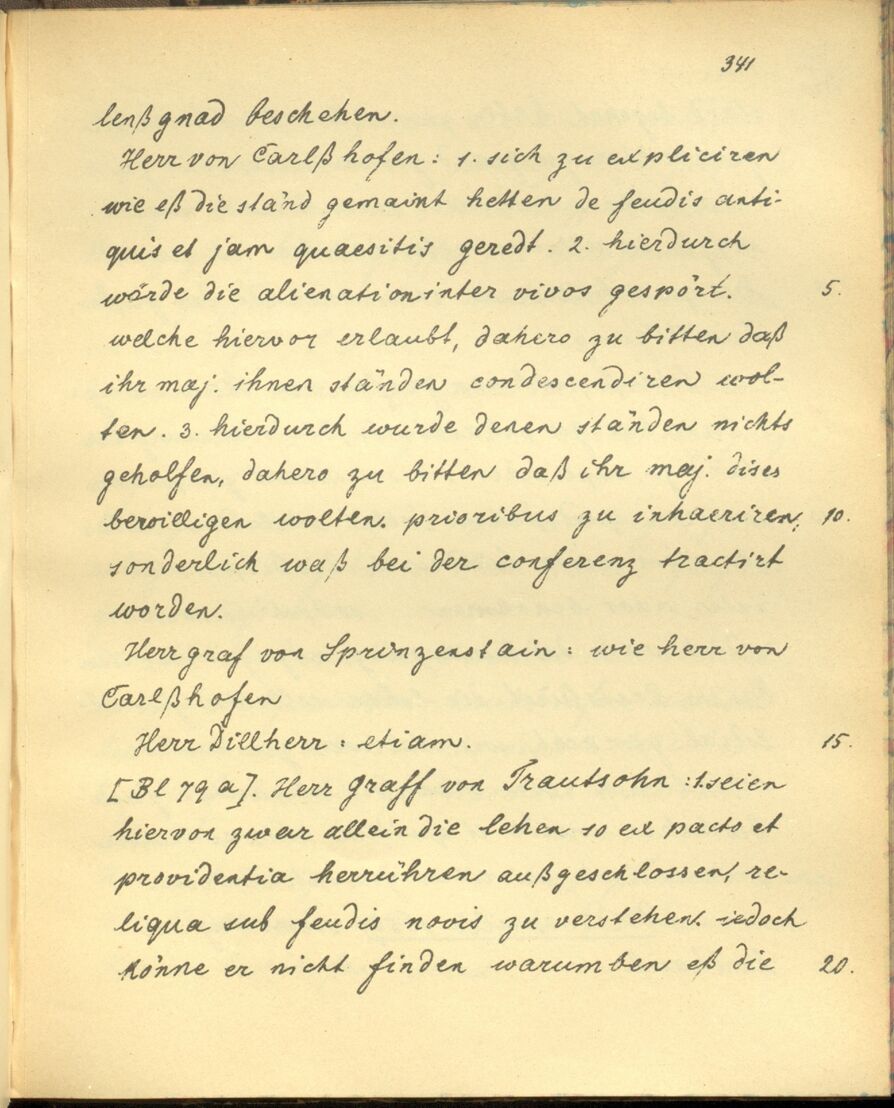 341
lenßgnad beschehen.
Herr von Carlßhofen: 1. sich zu expliciren
wie eß die ständ gemaint hetten de feudis anti-
quis et jam quaesitis geredt. 2. hierdurch
wörde die alienation inter vivos gespört. 5.
welche hiervor erlaubt, dahero zu bitten daß
ihr maj. ihnen ständen condescendiren wol-
ten. 3. hierdurch wurde denen ständen nichts
geholfen, dahero zu bitten daß ihr maj. dises
bewilligen wolten. prioribus zu inhaeriren, 10.
sonderlich waß bei der conferenz tractirt
worden.
Herr graf von Sprinzenstain: wie herr von
Carlßhofen
Herr Dillherr: etiam. 15.
[Bl 79a]. Herr graff von Trautsohn: 1. seien
hiervon zwar allein die lehen so ex pacto et
providentia herrühren außgeschlossen, re-
liqua sub feudis novis zu verstehen. iedoch
könne er nicht finden warumben eß die 20.